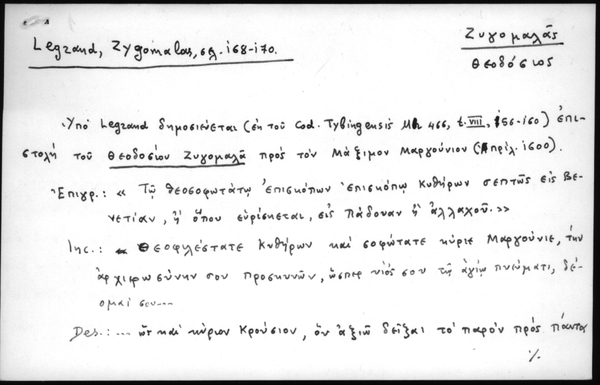 Legrand, Zygomalas, σελ. 168-170.
Ζυγομαλᾶς
Θεοδόσιος
Ὑπὸ Legrand δημοσιεύεται (ἐκ τοῦ Cod. Tybingensis Mh 466, t. VIII, 156-160) ἐπι-
στολὴ τοῦ Θεοδοσίου Ζυγομαλᾶ πρὸς τὸν Μάξιμον Μαργούνιον (Ἀπρίλ. 1600).
Ἐπιγρ.: « Τῷ θεοσοφωτάτῳ ἐπισκόπων ἐπισκόπῳ Κυθήρων σεπτῶς εἰς Βε-
νετίαν, ἢ ὅπου εὑρίσκεται, εἰς Πάδοναν ἢ ἀλλαχοῦ.»
Inc.: Θεοφιλέστατε Κυθήρων καὶ σοφώτατε κύριε Μαργούνιε, τὴν
ἀρχιερωσύνην σου προσκυνῶν, ὥσπερ υἱός σου τῷ ἁγίῳ πνεύματι, δέ-
ομαί σου...
Des.: ... καὶ κύριον Κρούσιον, ὃν ἀξιῶ δεῖξαι τὸ παρὸν πρὸς πάντας
./.